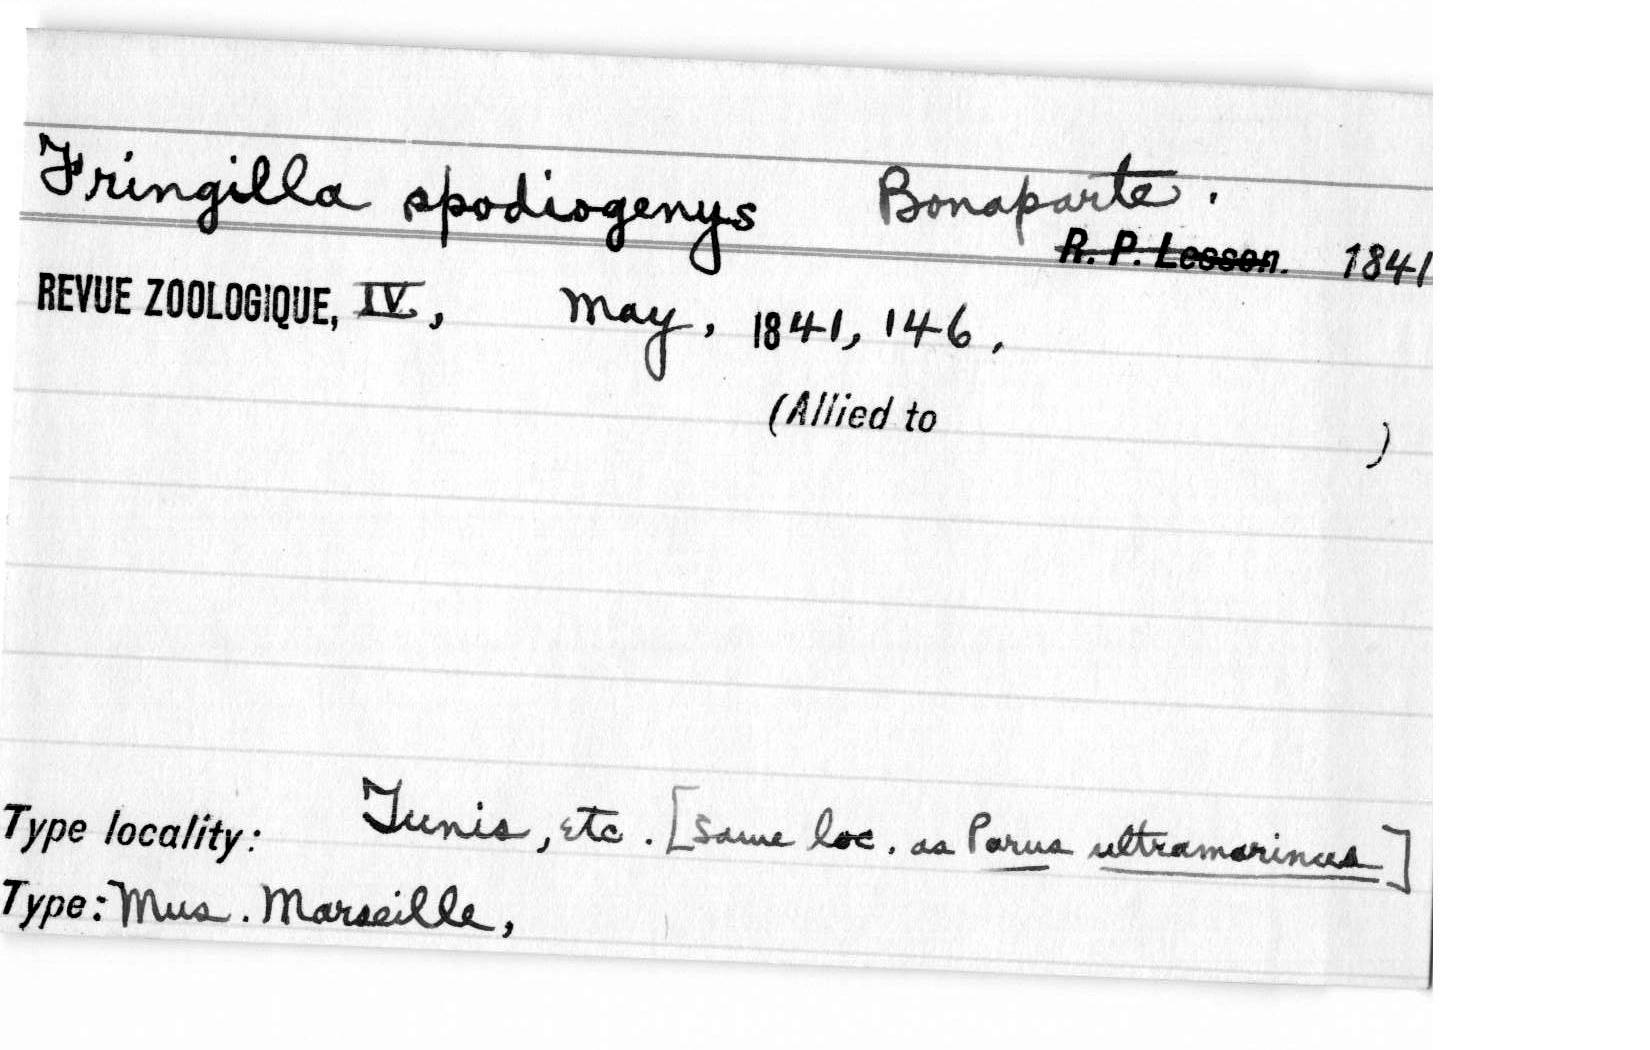 Fringilla spodiogenys Bonaparte.
R. P. Lesson. 1841
REVUE ZOOLOGIQUE, IV, May, 1841, 146,
(Allied to )
Type locality: Tunis, etc. [same loc. as Parus ultramarinus]
Type: Mus. Marseille,